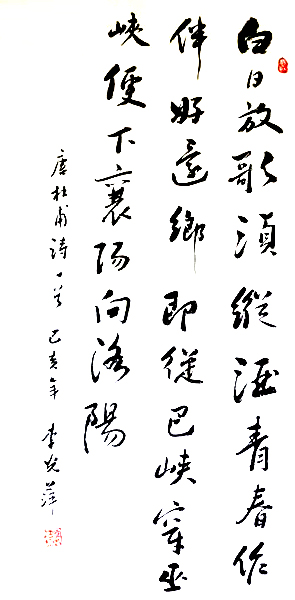 白日放歌湏縱酒青春作
伴好還鄉即從巴峽穿巫
峽便下襄陽向洛陽
唐杜甫詩一首 己亥年 李萍